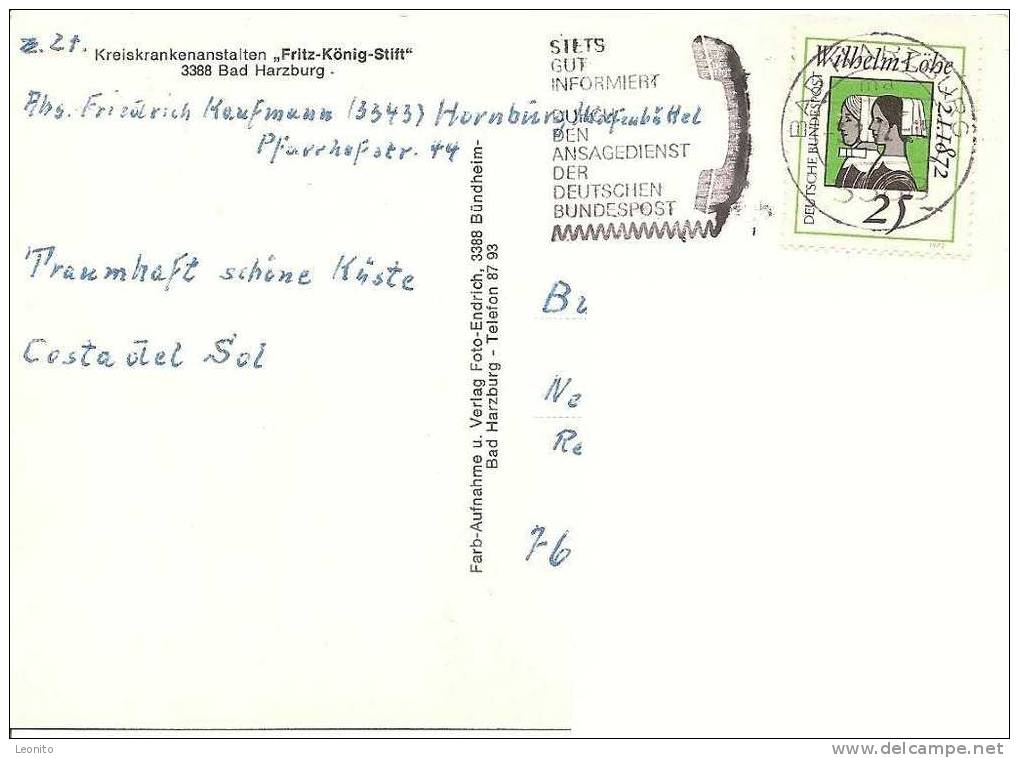 z. Zt.
Kreiskrankenanstalten „Fritz-König-Stift"
3388 Bad Harzburg .
Abs. Friedrich Kaufmann (3343) Hornburg Wolfenbüttel
Pfarrhofstr. 44
Traumhaft schöne Küste
Costa del Sol
Farb-Aufnahme u. Verlag Foto-Endrich, 3388 Bündheim-
Bad Harzburg - Telefon 87 93
STETS
GUT
INFORMIERT
DURCH
DEN
ANSAGEDIENST
DER
DEUTSCHEN
BUNDESPOST
BAD HARZBURG
Wilhelm Löhe
† 2.1.1872
DEUTSCHE BUNDESPOST
25
1972
Bu
Ne
Re
76
Leonito
www.delcampe.net